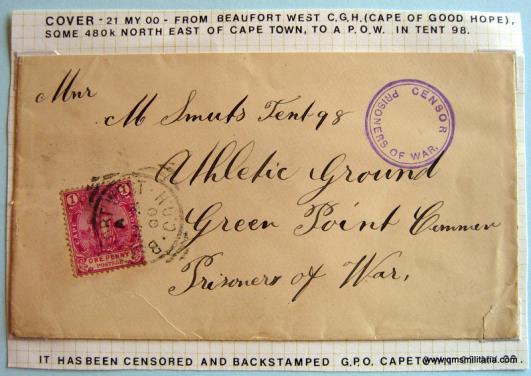 COVER - 21 MY 00 - FROM BEAUFORT WEST C.G.H. (CAPE OF GOOD HOPE),
SOME 480k NORTH EAST OF CAPE TOWN, TO A P.O.W. IN TENT 98.
Mnr
M Smuts Tent 98
CENSOR
PRISONERS OF WAR.
Athletic Ground
Green Point Common
Prisoners of War,
1 1
ONE PENNY
POSTAGE
IT HAS BEEN CENSORED AND BACKSTAMPED G.P.O. CAPETOWN
www.qmsmilitaria.com